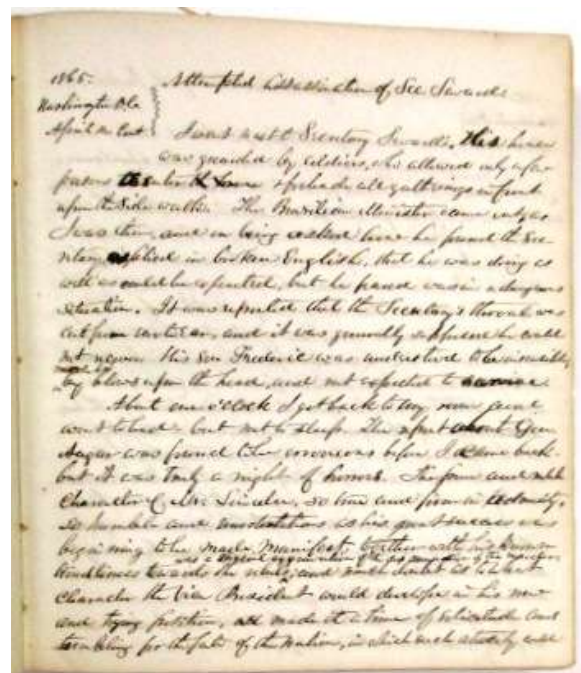 1865.
Washington D.C.
April
Attempted assassination of Sec Seward
I went next to Secretary Seward's. His house
was guarded by soldiers, who allowed only a few
persons to enter the house & forbade all gatherings in front
upon the side walk. The Brazilian Minister came out as
I was there, and on being asked how he found the Sec-
retary, replied in broken English, that he was doing as
well as could be expected, but he found was in a dangerous
situation. It was reported that the Secretary's throat was
cut from ear to ear, and it was generally supposed he could
not recover. His son Frederic was understood to be
by blows upon the head, and not expected to survive.
About one o'clock I got back to my room and
went to bed but not to sleep. The report about Gen
was found to be erroneous before I came back
but it was truly a night of horrors. The firm and noble
character of Mr. Lincoln, so true and firm in adversity,
so humble and unostentatious as his great success was
beginning to be made manifest, together with his
kindness towards the rebels, and much doubt as to what
character the Vice President would develope in his new
and trying position, all made it a time of solicitude and
trembling for the fate of the Nation, in which such atrocity could